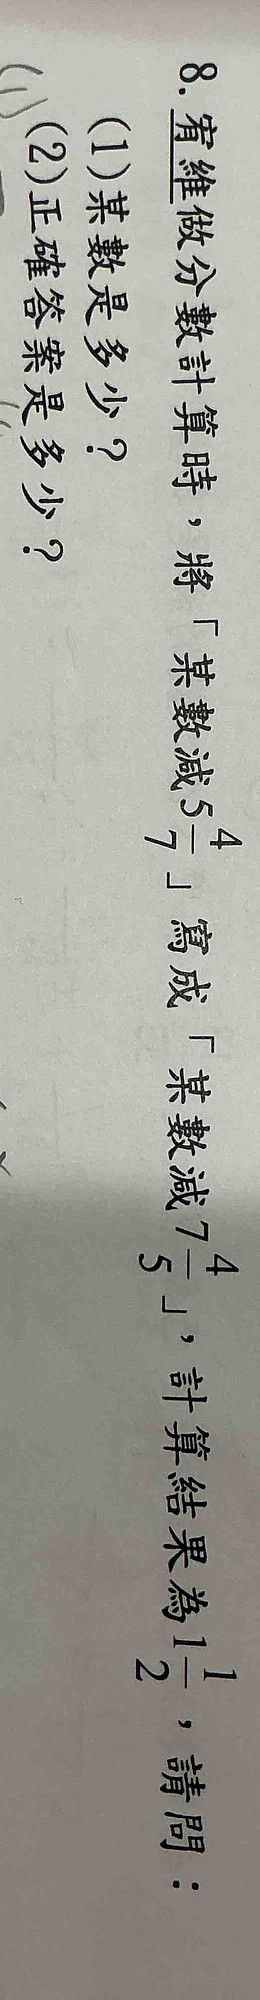 8. 宥維做分數計算時，將「某數減5 4/7」寫成「某數減7 4/5」，計算結果為1 1/2，請問：
(1)某數是多少？
(2)正確答案是多少？
(1)